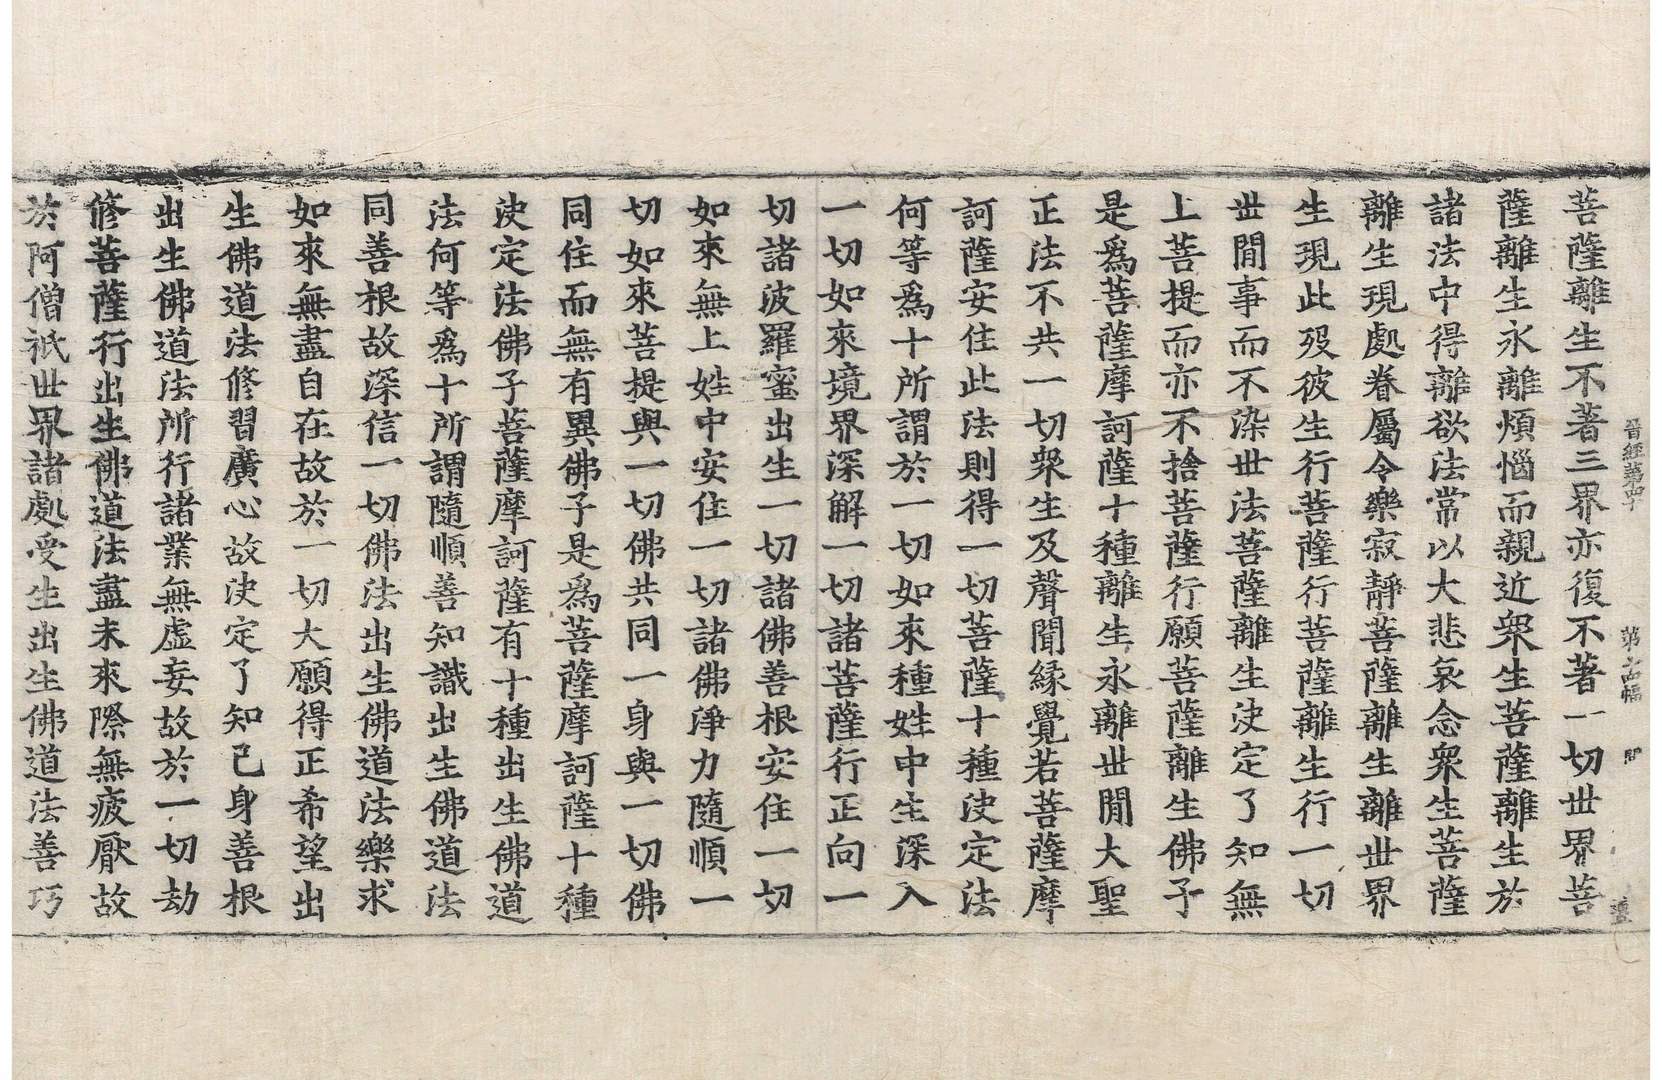 晉經第四十 第六幅 閏
菩薩離生不著三界亦復不著一切世界菩
薩離生永離煩惱而親近衆生菩薩離生於
諸法中得離欲法常以大悲哀念衆生菩薩
離生現處眷屬令樂寂靜菩薩離生離世界
生現此歿彼生行菩薩行菩薩離生行一切
世間事而不染世法菩薩離生決定了知無
上菩提而亦不捨菩薩行願菩薩離生佛子
是爲菩薩摩訶薩十種離生永離世間大聖
正法不共一切衆生及聲聞緣覺若菩薩摩
訶薩安住此法則得一切菩薩十種決定法
何等爲十所謂於一切如來種姓中生深入
一切如來境界深解一切諸菩薩行正向一
切諸波羅蜜出生一切諸佛善根安住一切
如來無上姓中安住一切諸佛淨力隨順一
切如來菩提與一切佛共同一身與一切佛
同住而無有異佛子是爲菩薩摩訶薩十種
決定法佛子菩薩摩訶薩有十種出生佛道
法何等爲十所謂隨順善知識出生佛道法
同善根故深信一切佛法出生佛道法樂求
如來無盡自在故於一切大願得正希望出
生佛道法修習廣心故決定了知己身善根
出生佛道法所行諸業無虛妄故於一切劫
修菩薩行出生佛道法盡未來際無疲厭故
於阿僧祇世界諸處受生出生佛道法善巧